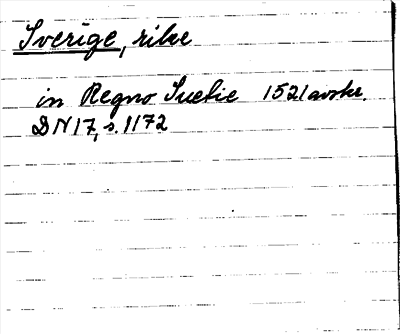 Sverige, rike
in Regno Suetie 1521 avskr.
DN 17, s. 1172